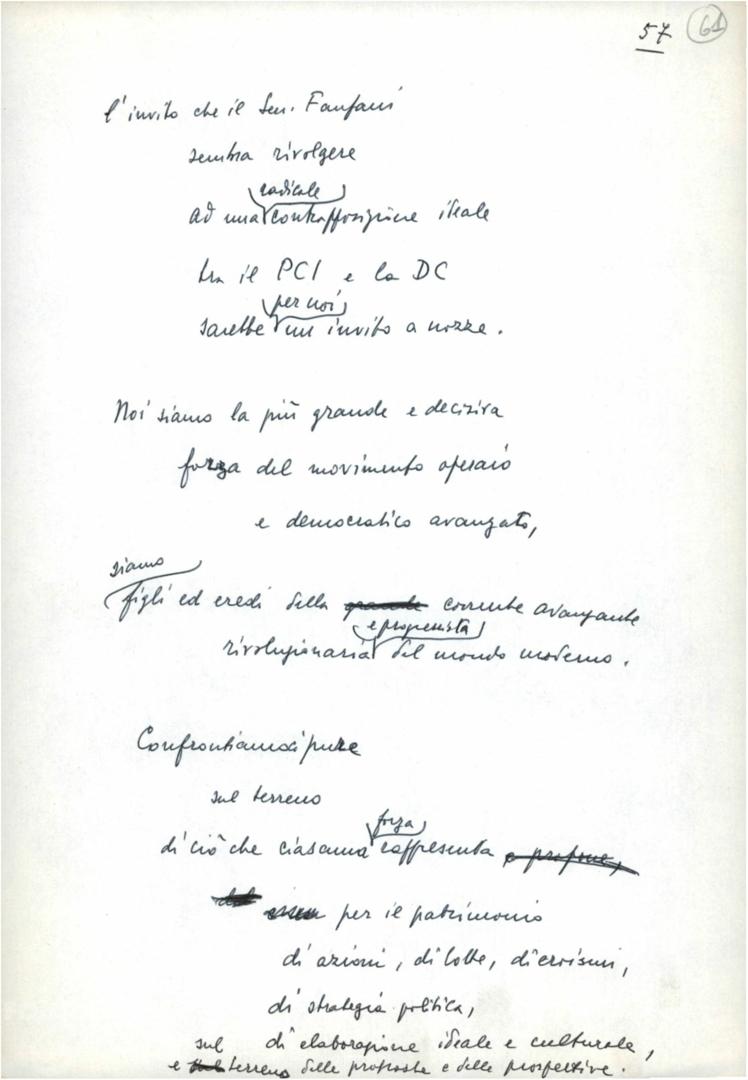 57 61
l'invito che il Sen. Fanfani
sembra rivolgere
radicale
ad una contrapposizione ideale
tra il PCI e la DC
per noi
sarebbe un invito a nozze.
Noi siamo la più grande e decisiva
forza del movimento operaio
e democratico avanzato,
siamo
figli ed eredi della grande corrente avanzante
e progressista
rivoluzionaria del mondo moderno.
Confrontiamoci pure
sul terreno
forza
di ciò che ciascuna rappresenta e propone,
per il patrimonio
di azioni, di lotte, di eroismi,
di strategia politica,
di elaborazione ideale e culturale,
sul
e terreno delle proposte e delle prospettive.